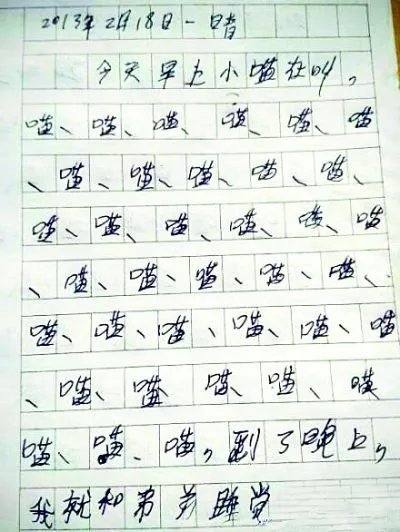 2013年2月18日一晴
今天早上小喵在叫,
喵、喵、喵、喵、喵、喵
、喵、喵、喵、喵、喵、
喵、喵、喵、喵、喵、喵
、喵、喵、喵、喵、喵、
喵、喵、喵、喵、喵、喵
、喵、喵、喵、喵、喵
喵、喵、喵,到了晚上,
我就和弟弟睡觉